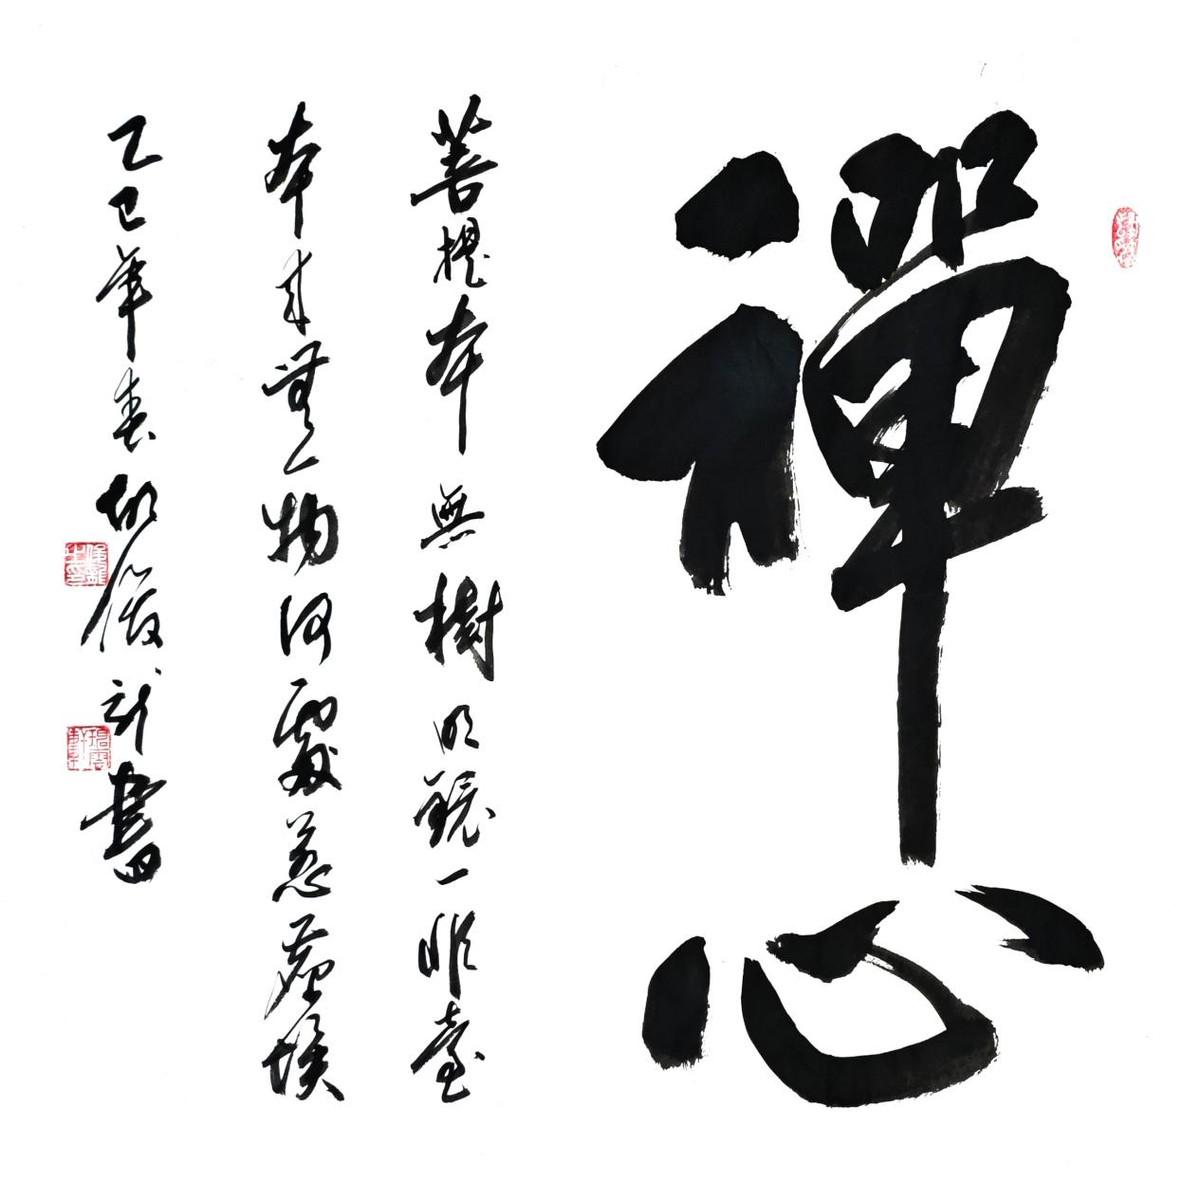 禪心
菩提本無樹明鏡一非臺
本来無一物何處惹塵埃
乙巳年春胡書